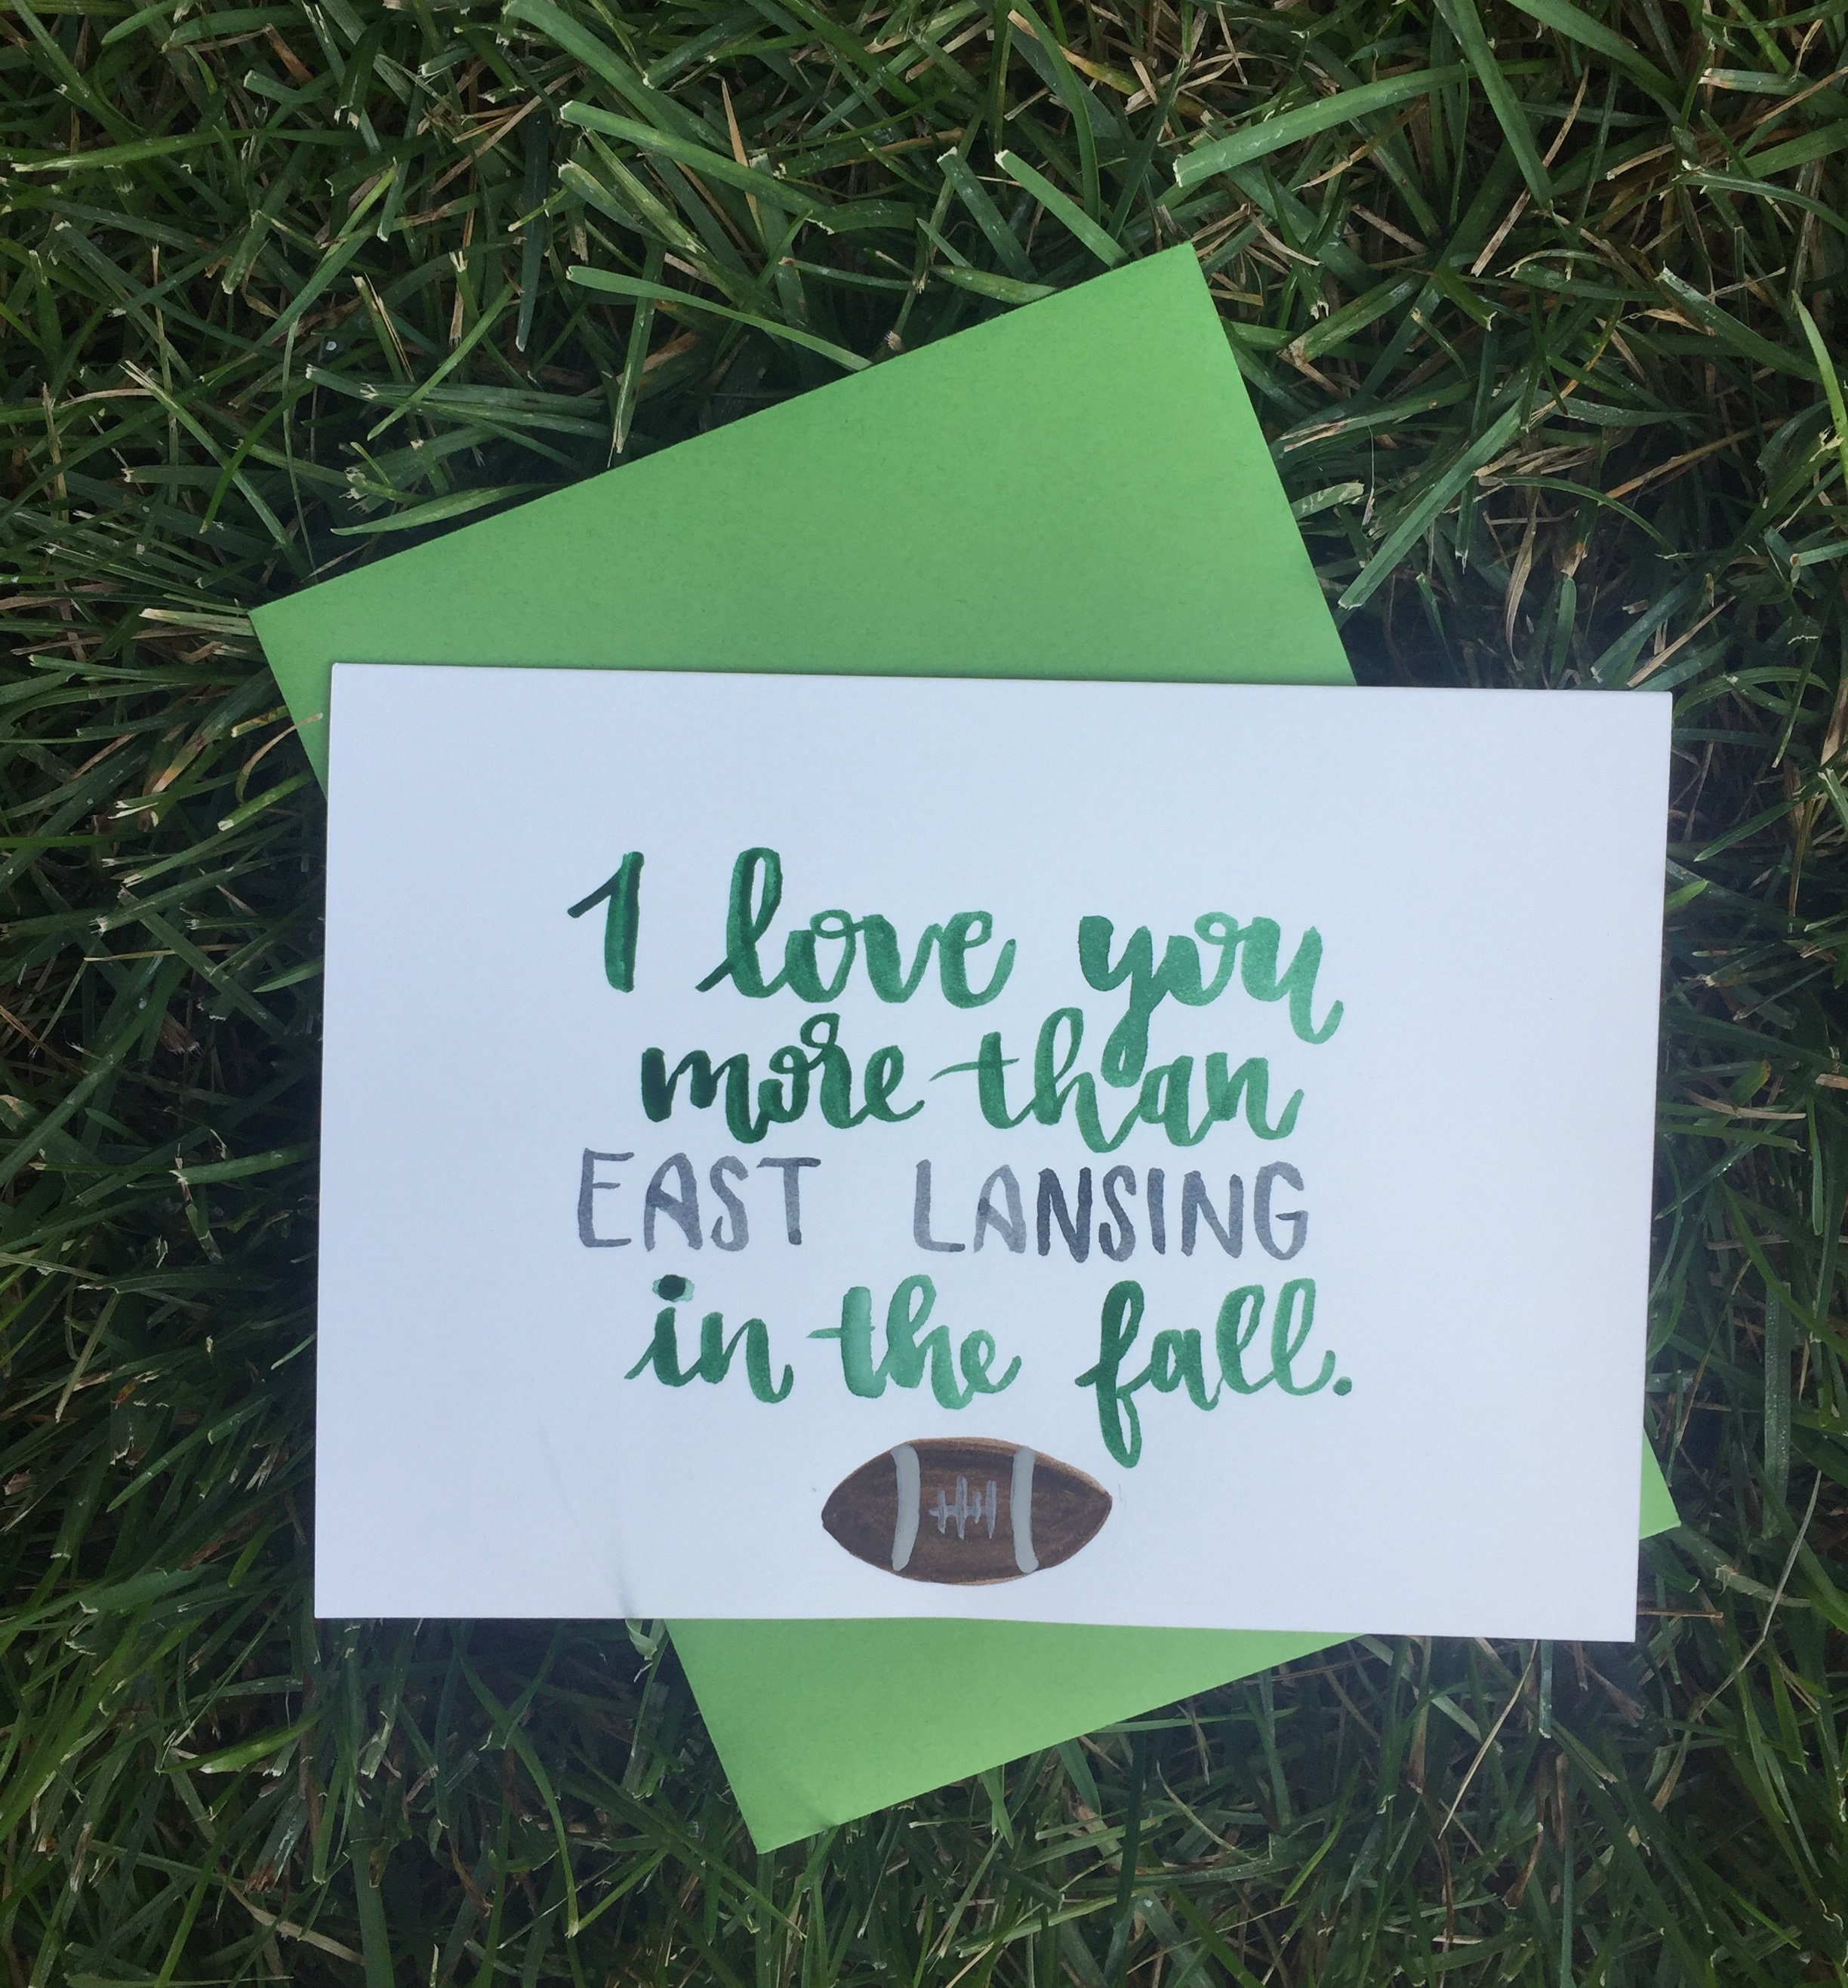 I love you
more than
EAST LANSING
in the fall.